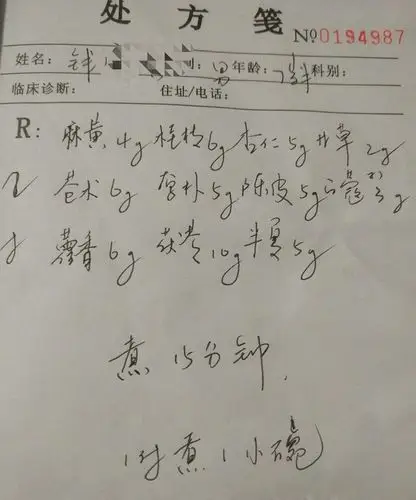 处方笺
№0194987
姓名: 别: 男 年龄: 科别:
临床诊断: 住址/电话:
R: 麻黄4g 桂枝6g 杏仁5g 甘草2g
苍术6g 厚朴5g 陈皮5g 白蔻3g
藿香6g 茯苓10g 半夏5g
煮15分钟,
1付煮1小碗